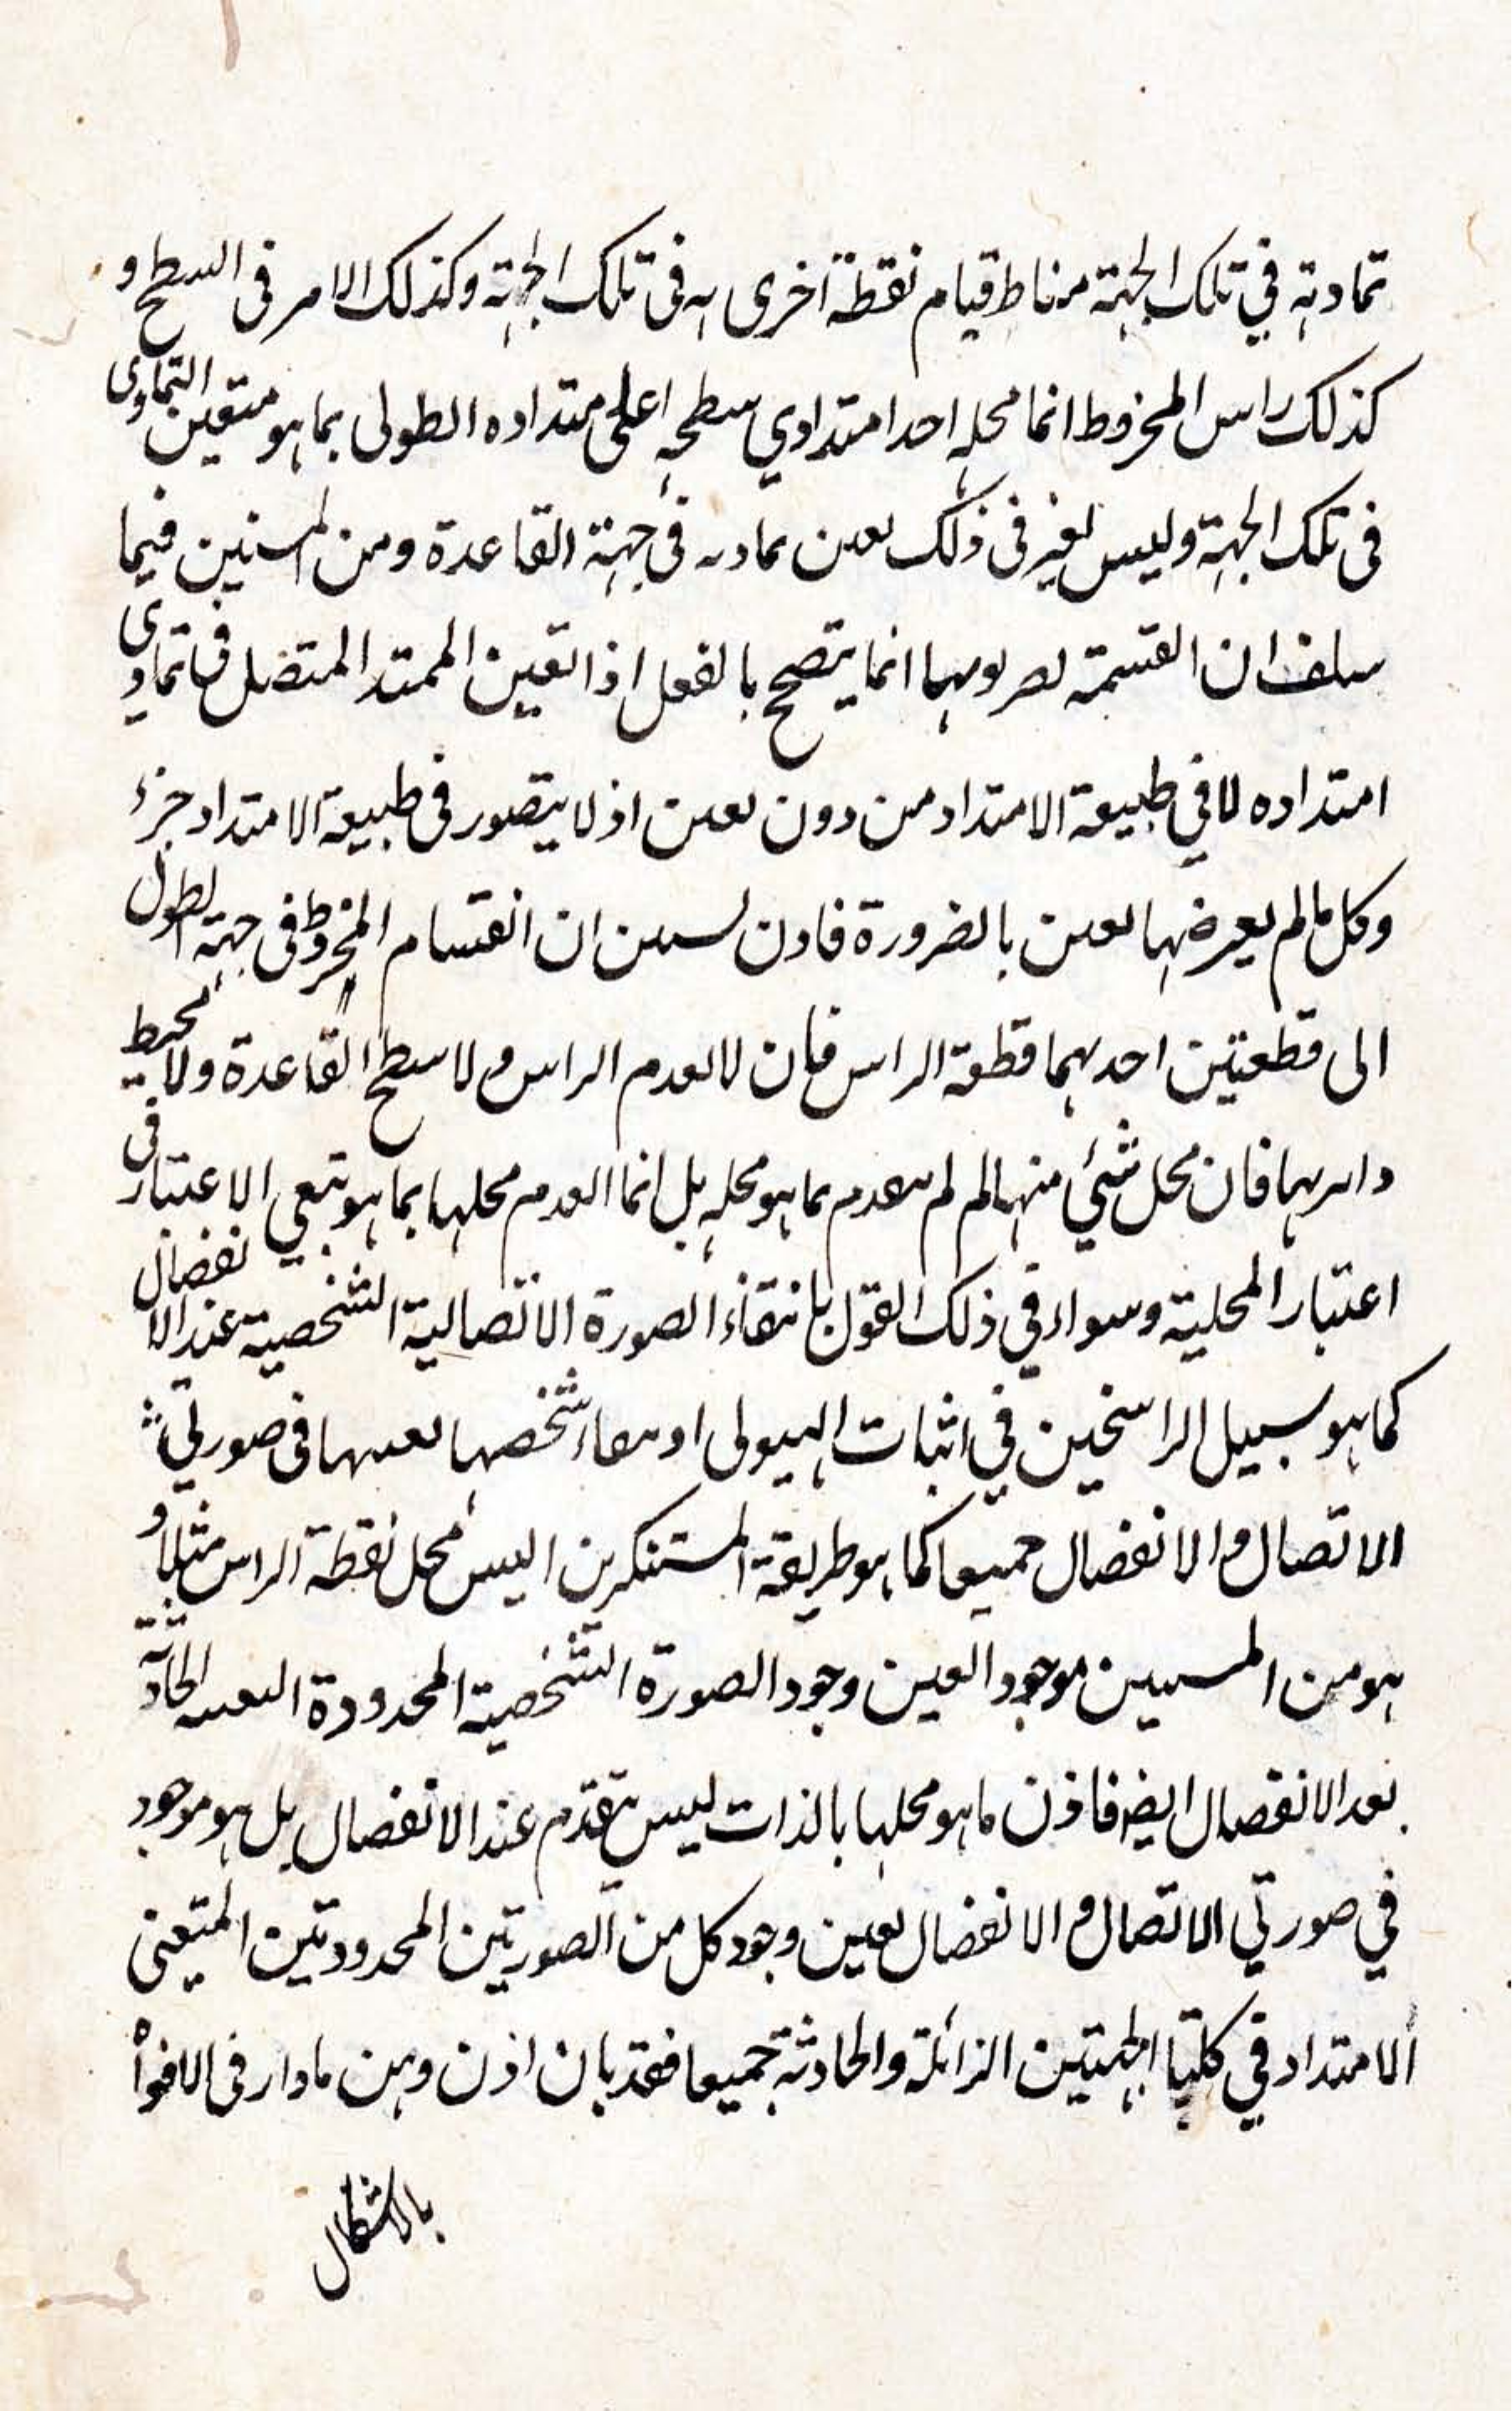 تماديه في تلك الجهة مناط قيام نقطة اخرى به فى تلك الجهة وكذلك الامر فى السطح و
كذلك راس المخروط انما محله احد امتدادي سطحه اعلى امتداده الطولى بما هو متعين التمادى
فى تلك الجهة وليس لغير فى ذلك تعين تماديه فى جهة القاعدة ومن المستبين فيما
سلف ان القسمة انما يتصحح بالفعل اذا تعين الممتد المتصل فى تمادى
امتداده لا في طبيعة الامتداد من دون تعين اذ لا يتصور فى طبيعة الامتداد جزء
وكل ما لم يعرضها تعين بالضرورة فاذن ان انقسام المخروط فى جهة الطول
الى قطعتين احديهما قطعة الراس فان لا انعدم الراس ولا سطح القاعدة ولا محيط
دائرتها فان محل شئي منها لم ينعدم بما هو محله بل انما انعدم محلها بما هو الاعتبار فى
اعتبار المحلية وسواء في ذلك القول بانتفاء الصورة الاتصالية الشخصية عند الانفصال
كما هو سبيل الراسخين في اثبات الهيولى او بقاء شخصها بعينها فى صورتي
الاتصال والانفصال جميعا كما هو طريقة المستنكرين اليس محل نقطة الراس مثلا و
هو من موجود العين وجود الصورة الشخصية المحدودة الحادثة
بعد الانفصال ايضا فاذن ما هو محلها بالذات ليس ينعدم عند الانفصال بل هو موجود
في صورتي الاتصال والانفصال بعين وجود كل من الصورتين المحدودتين المتعينى
الامتداد في كلتا الجهتين الزائلة والحادثة جميعا فقد بان اذن وهن ما دار فى الافواه
بالاشكال